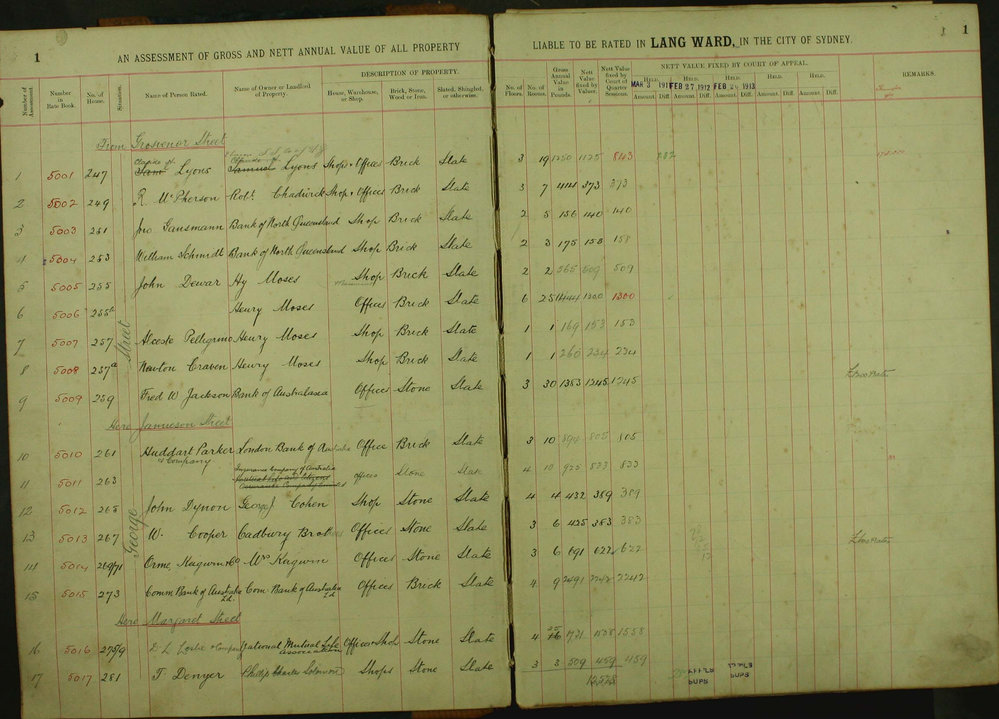 1
AN ASSESSMENT OF GROSS AND NETT ANNUAL VALUE OF ALL PROPERTY
LIABLE TO BE RATED IN LANG WARD, IN THE CITY OF SYDNEY.
1
Number of Assessment.
Number in Rate Book.
No. of House.
Situation.
Name of Person Rated.
Name of Owner or Landlord of Property.
DESCRIPTION OF PROPERTY.
House, Warehouse, or Shop.
Brick, Stone, Wood or Iron.
Slated, Shingled, or otherwise.
No. of Floors.
No. of Rooms.
Gross Annual Value in Pounds.
Nett Value fixed by Valuer.
Nett Value fixed by Court of Quarter Sessions.
NETT VALUE FIXED BY COURT OF APPEAL.
HELD. HELD. HELD. HELD. HELD.
MAR 3 191 FEB 27 1912 FEB 26 1913
Amount. Diff. Amount. Diff. Amount. Diff. Amount. Diff. Amount. Diff.
REMARKS.
From Grosvenor Street
1 5001 247 Sam Lyons Samuel Lyons Shops + Offices Brick Slate 3 19 1250 1125 843
2 5002 249 R. McPherson Robt. Chadwick Shop + Offices Brick Slate 3 7 414 373 373
3 5003 251 Jno Gausmann Bank of North Queensland Shop Brick Slate 2 5 156 140 140
4 5004 253 William Schmidt Bank of North Queensland Shop Brick Slate 2 3 175 158 158
5 5005 255 John Dewar Hy Moses Shop Brick Slate 2 2 565 509 509
6 5006 255½ Henry Moses Offices Brick Slate 6 25 1444 1300 1300
7 5007 257 Alceste Pellegrino Henry Moses Shop Brick Slate 1 1 169 153 153
8 5008 257a Newton Craven Henry Moses Shop Brick Slate 1 1 260 234 234
9 5009 259 Fred W Jackson Bank of Australasia Offices Stone Slate 3 30 1383 1245 1245
George Street
Here Jamieson Street
10 5010 261 Huddart Parker & Company London Bank of Australia Office Brick Slate 3 10 894 805 805
11 5011 263 Insurance Company of Australia offices Stone Slate 4 10 925 833 833
12 5012 265 John Dynon George J Cohen Shop Stone Slate 4 4 432 389 389
13 5013 267 W. Cooper Cadbury Brothers Offices Stone Slate 3 6 425 383 383
14 5014 269/71 Orme, Keigwin & Co Mrs Keigwin Offices Stone Slate 3 6 691 622 622
15 5015 273 Comm Bank of Australia Ld. Com. Bank of Australia Ld Offices Brick Slate 4 9 2491 2242 2242
Here Margaret Street
16 5016 275/9 E L Leslie & Company National Mutual Life Association Offices + Shop Stone Slate 4 25 1731 1558 1558
17 5017 281 T. Denyer Phillip Charles Solomon Shops Stone Slate 3 3 509 459 459
12528